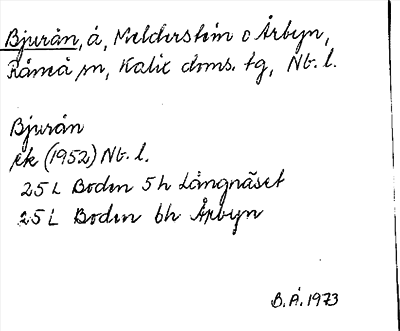 Bjurån, å, Melderstein o Årbyn,
Råneå sn, Kalix doms. tg, Nb. l.
Bjurån
ek (1952) Nb. l.
25L Boden 5h Långnäset
25L Boden 6h Årbyn
B.Å. 1973